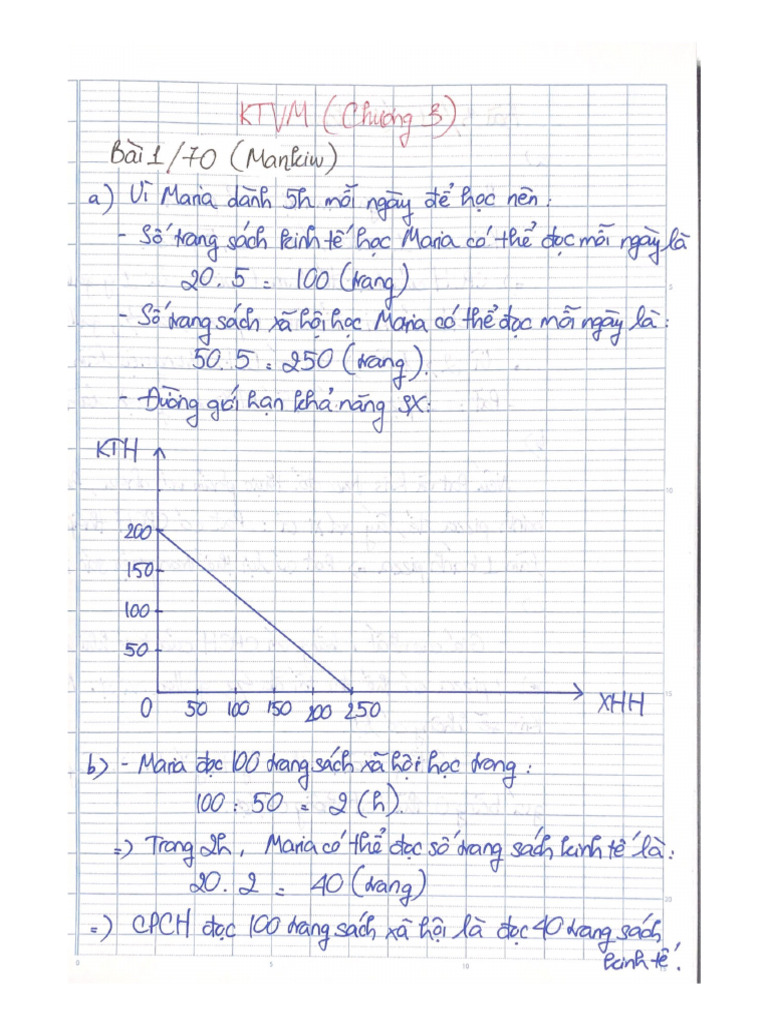 KTVM (Chương 3)
Bài 1/70 (Mankiw)
a) Vì Maria dành 5h mỗi ngày để học nên:
- Số trang sách kinh tế học Maria có thể đọc mỗi ngày là
20.5 = 100 (trang)
- Số trang sách xã hội học Maria có thể đọc mỗi ngày là:
50.5 = 250 (trang).
- Đường giới hạn khả năng SX:
KTH
200
150
100
50
0 50 100 150 200 250 XHH
b) - Maria đọc 100 trang sách xã hội học trong:
100 : 50 = 2 (h).
=) Trong 2h, Maria có thể đọc số trang sách kinh tế là:
20.2 = 40 (trang)
=) CPCH đọc 100 trang sách xã hội là đọc 40 trang sách
kinh tế.
0 5 10
5
10
15
20